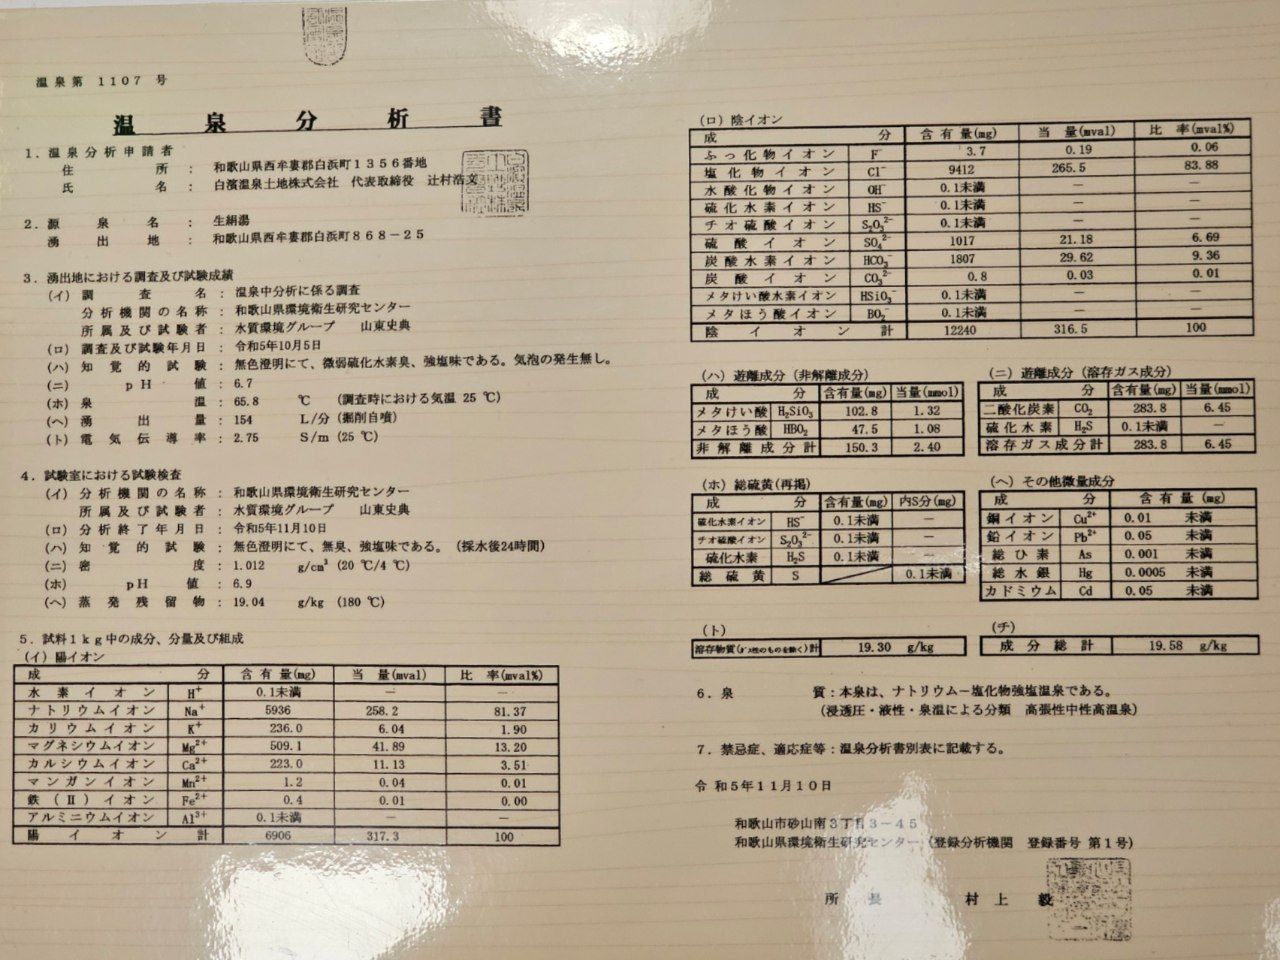 温泉第 1107 号
温泉分析書
1. 温泉分析申請者
住所 : 和歌山県西牟婁郡白浜町1356番地
氏名 : 白濱温泉土地株式会社 代表取締役 辻村浩文
2. 源泉名 : 生絹湯
湧出地 : 和歌山県西牟婁郡白浜町868-25
3. 湧出地における調査及び試験成績
(イ) 調査名 : 温泉中分析に係る調査
分析機関の名称 : 和歌山県環境衛生研究センター
所属及び試験者 : 水質環境グループ 山東史典
(ロ) 調査及び試験年月日 : 令和5年10月5日
(ハ) 知覚的試験 : 無色澄明にて、微弱硫化水素臭、強塩味である。気泡の発生無し。
(ニ) pH値 : 6.7
(ホ) 泉温 : 65.8 ℃ (調査時における気温 25 ℃)
(ヘ) 湧出量 : 154 L/分 (掘削自噴)
(ト) 電気伝導率 : 2.75 S/m (25 ℃)
4. 試験室における試験検査
(イ) 分析機関の名称 : 和歌山県環境衛生研究センター
所属及び試験者 : 水質環境グループ 山東史典
(ロ) 分析終了年月日 : 令和5年11月10日
(ハ) 知覚的試験 : 無色澄明にて、無臭、強塩味である。(採水後24時間)
(ニ) 密度 : 1.012 g/cm³ (20 ℃/4 ℃)
(ホ) pH値 : 6.9
(ヘ) 蒸発残留物 : 19.04 g/kg (180 ℃)
5. 試料1kg中の成分、分量及び組成
(イ) 陽イオン
成分 含有量(mg) 当量(mval) 比率(mval%)
水素イオン H⁺ 0.1未満 — —
ナトリウムイオン Na⁺ 5936 258.2 81.37
カリウムイオン K⁺ 236.0 6.04 1.90
マグネシウムイオン Mg²⁺ 509.1 41.89 13.20
カルシウムイオン Ca²⁺ 223.0 11.13 3.51
マンガンイオン Mn²⁺ 1.2 0.04 0.01
鉄(II)イオン Fe²⁺ 0.4 0.01 0.00
アルミニウムイオン Al³⁺ 0.1未満 — —
陽イオン計 6906 317.3 100
(ロ) 陰イオン
成分 含有量(mg) 当量(mval) 比率(mval%)
ふっ化物イオン F⁻ 3.7 0.19 0.06
塩化物イオン Cl⁻ 9412 265.5 83.88
水酸化物イオン OH⁻ 0.1未満 — —
硫化水素イオン HS⁻ 0.1未満 — —
チオ硫酸イオン S₂O₃²⁻ 0.1未満 — —
硫酸イオン SO₄²⁻ 1017 21.18 6.69
炭酸水素イオン HCO₃⁻ 1807 29.62 9.36
炭酸イオン CO₃²⁻ 0.8 0.03 0.01
メタけい酸水素イオン HSiO₃⁻ 0.1未満 — —
メタほう酸イオン BO₂⁻ 0.1未満 — —
陰イオン計 12240 316.5 100
(ハ) 遊離成分 (非解離成分)
成分 含有量(mg) 当量(mmol)
メタけい酸 H₂SiO₃ 102.8 1.32
メタほう酸 HBO₂ 47.5 1.08
非解離成分計 150.3 2.40
(ニ) 遊離成分 (溶存ガス成分)
成分 含有量(mg) 当量(mmol)
二酸化炭素 CO₂ 283.8 6.45
硫化水素 H₂S 0.1未満 —
溶存ガス成分計 283.8 6.45
(ホ) 総硫黄(再掲)
成分 含有量(mg) 内S分(mg)
硫化水素イオン HS⁻ 0.1未満 —
チオ硫酸イオン S₂O₃²⁻ 0.1未満 —
硫化水素 H₂S 0.1未満 —
総硫黄 S 0.1未満
(ヘ) その他微量成分
成分 含有量(mg)
銅イオン Cu²⁺ 0.01 未満
鉛イオン Pb²⁺ 0.05 未満
総ひ素 As 0.001 未満
総水銀 Hg 0.0005 未満
カドミウム Cd 0.05 未満
(ト)
溶存物質(ガス性のものを除く)計 19.30 g/kg
(チ)
成分総計 19.58 g/kg
6. 泉質 : 本泉は、ナトリウム-塩化物強塩温泉である。
(浸透圧・液性・泉温による分類 高張性中性高温泉)
7. 禁忌症、適応症等 : 温泉分析書別表に記載する。
令和5年11月10日
和歌山市砂山南3丁目3-45
和歌山県環境衛生研究センター (登録分析機関 登録番号 第1号)
所長 村上 毅